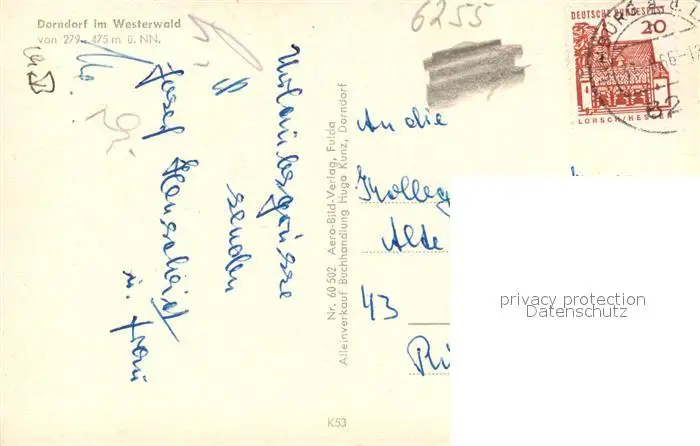 Dorndorf im Westerwald
von 279-475 m ü. NN.
6255
Urlaubsgrüsse
senden
Josef
u. Frau
Nr. 60 502 Aero-Bild-Verlag, Fulda
Alleinverkauf Buchhandlung Hugo Kunz, Dorndorf
K53
DEUTSCHE BUNDESPOST
20
LORSCH/HESSEN
An die
Kolleg
Alte
43
privacy protection
Datenschutz